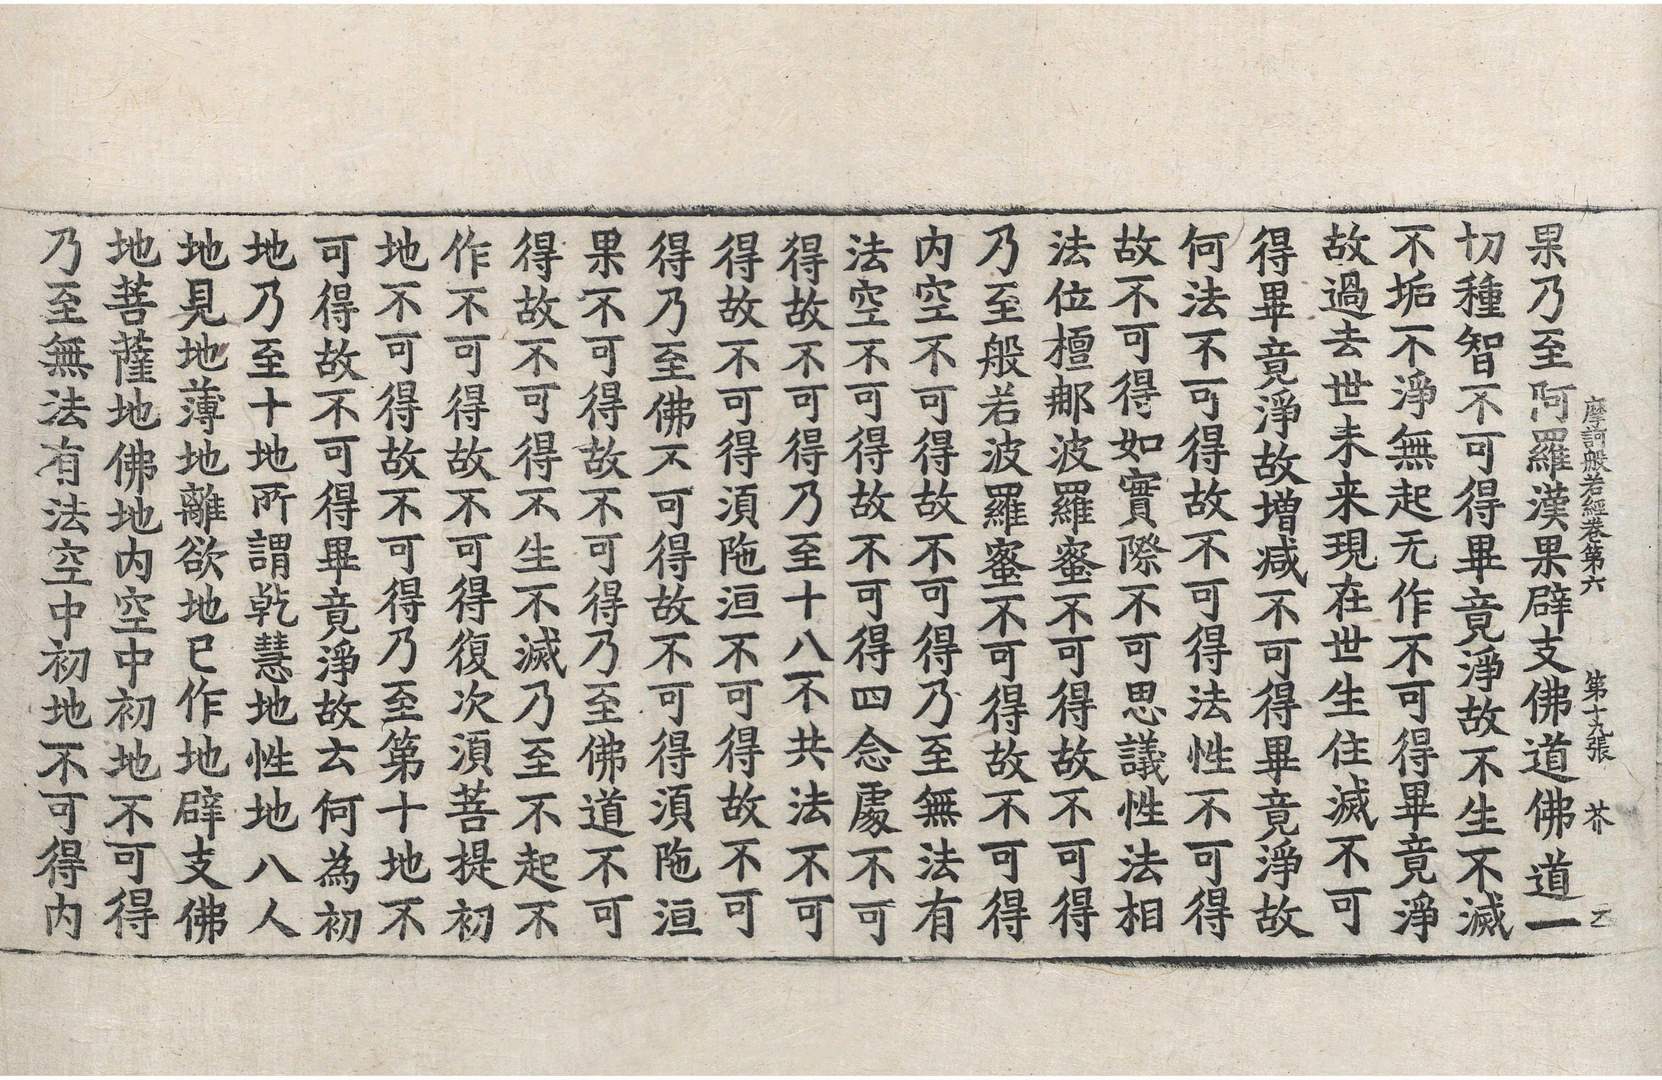 摩訶般若經卷第六 第十九張 芥
果乃至阿羅漢果辟支佛道佛道一
切種智不可得畢竟淨故不生不滅
不垢不淨無起无作不可得畢竟淨
故過去世未来現在世生住滅不可
得畢竟淨故增减不可得畢竟淨故
何法不可得故不可得法性不可得
故不可得如實際不可思議性法相
法位檀那波羅蜜不可得故不可得
乃至般若波羅蜜不可得故不可得
内空不可得故不可得乃至無法有
法空不可得故不可得四念處不可
得故不可得乃至十八不共法不可
得故不可得須陁洹不可得故不可
得乃至佛不可得故不可得須陁洹
果不可得故不可得乃至佛道不可
得故不可得不生不滅乃至不起不
作不可得故不可得復次須菩提初
地不可得故不可得乃至第十地不
可得故不可得畢竟淨故云何為初
地乃至十地所謂乾慧地性地八人
地見地薄地離欲地已作地辟支佛
地菩薩地佛地内空中初地不可得
乃至無法有法空中初地不可得内